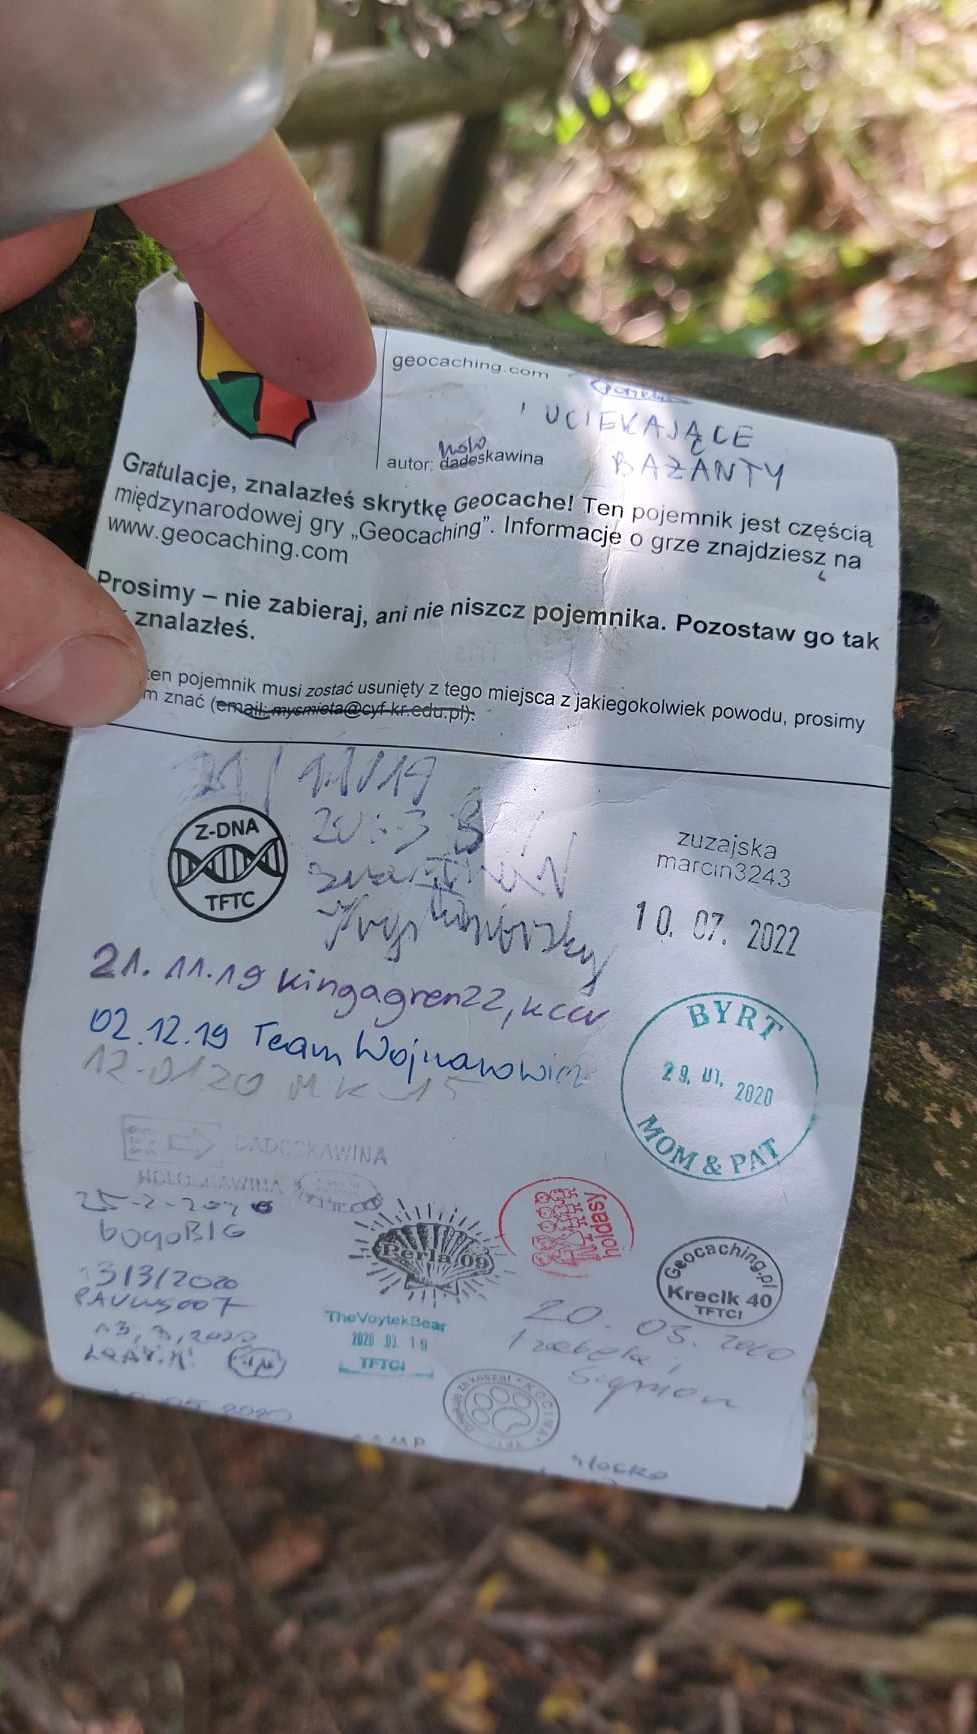 geocaching.com
UCIEKAJĄCE
BAŻANTY
holo
autor: dadeskawina
Gratulacje, znalazłeś skrytkę Geocache! Ten pojemnik jest częścią
międzynarodowej gry „Geocaching”. Informacje o grze znajdziesz na
www.geocaching.com
Prosimy – nie zabieraj, ani nie niszcz pojemnika. Pozostaw go tak
znalazłeś.
ten pojemnik musi zostać usunięty z tego miejsca z jakiegokolwiek powodu, prosimy
m znać (email: mysmieta@cyf-kr.edu.pl).
21/11/19
Z-DNA
TFTC
zuzajska
marcin3243
10. 07. 2022
21.11.19 Kingagren22,
02.12.19 Team Wojnarowicz
12-0120 MK 15
BYRT
29. 01. 2020
MOM & PAT
DADESKAWINA
HOLOSKAWINA
25-2-2020
bogoBIG
Perla 09
holdasy
Geocaching.pl
Krecik 40
TFTC!
13/3/2020
13,3,2020
TheVoytekBear
2020 03. 19
TFTC!
20.03.2020
Izabela i
Szymon
KOCINA